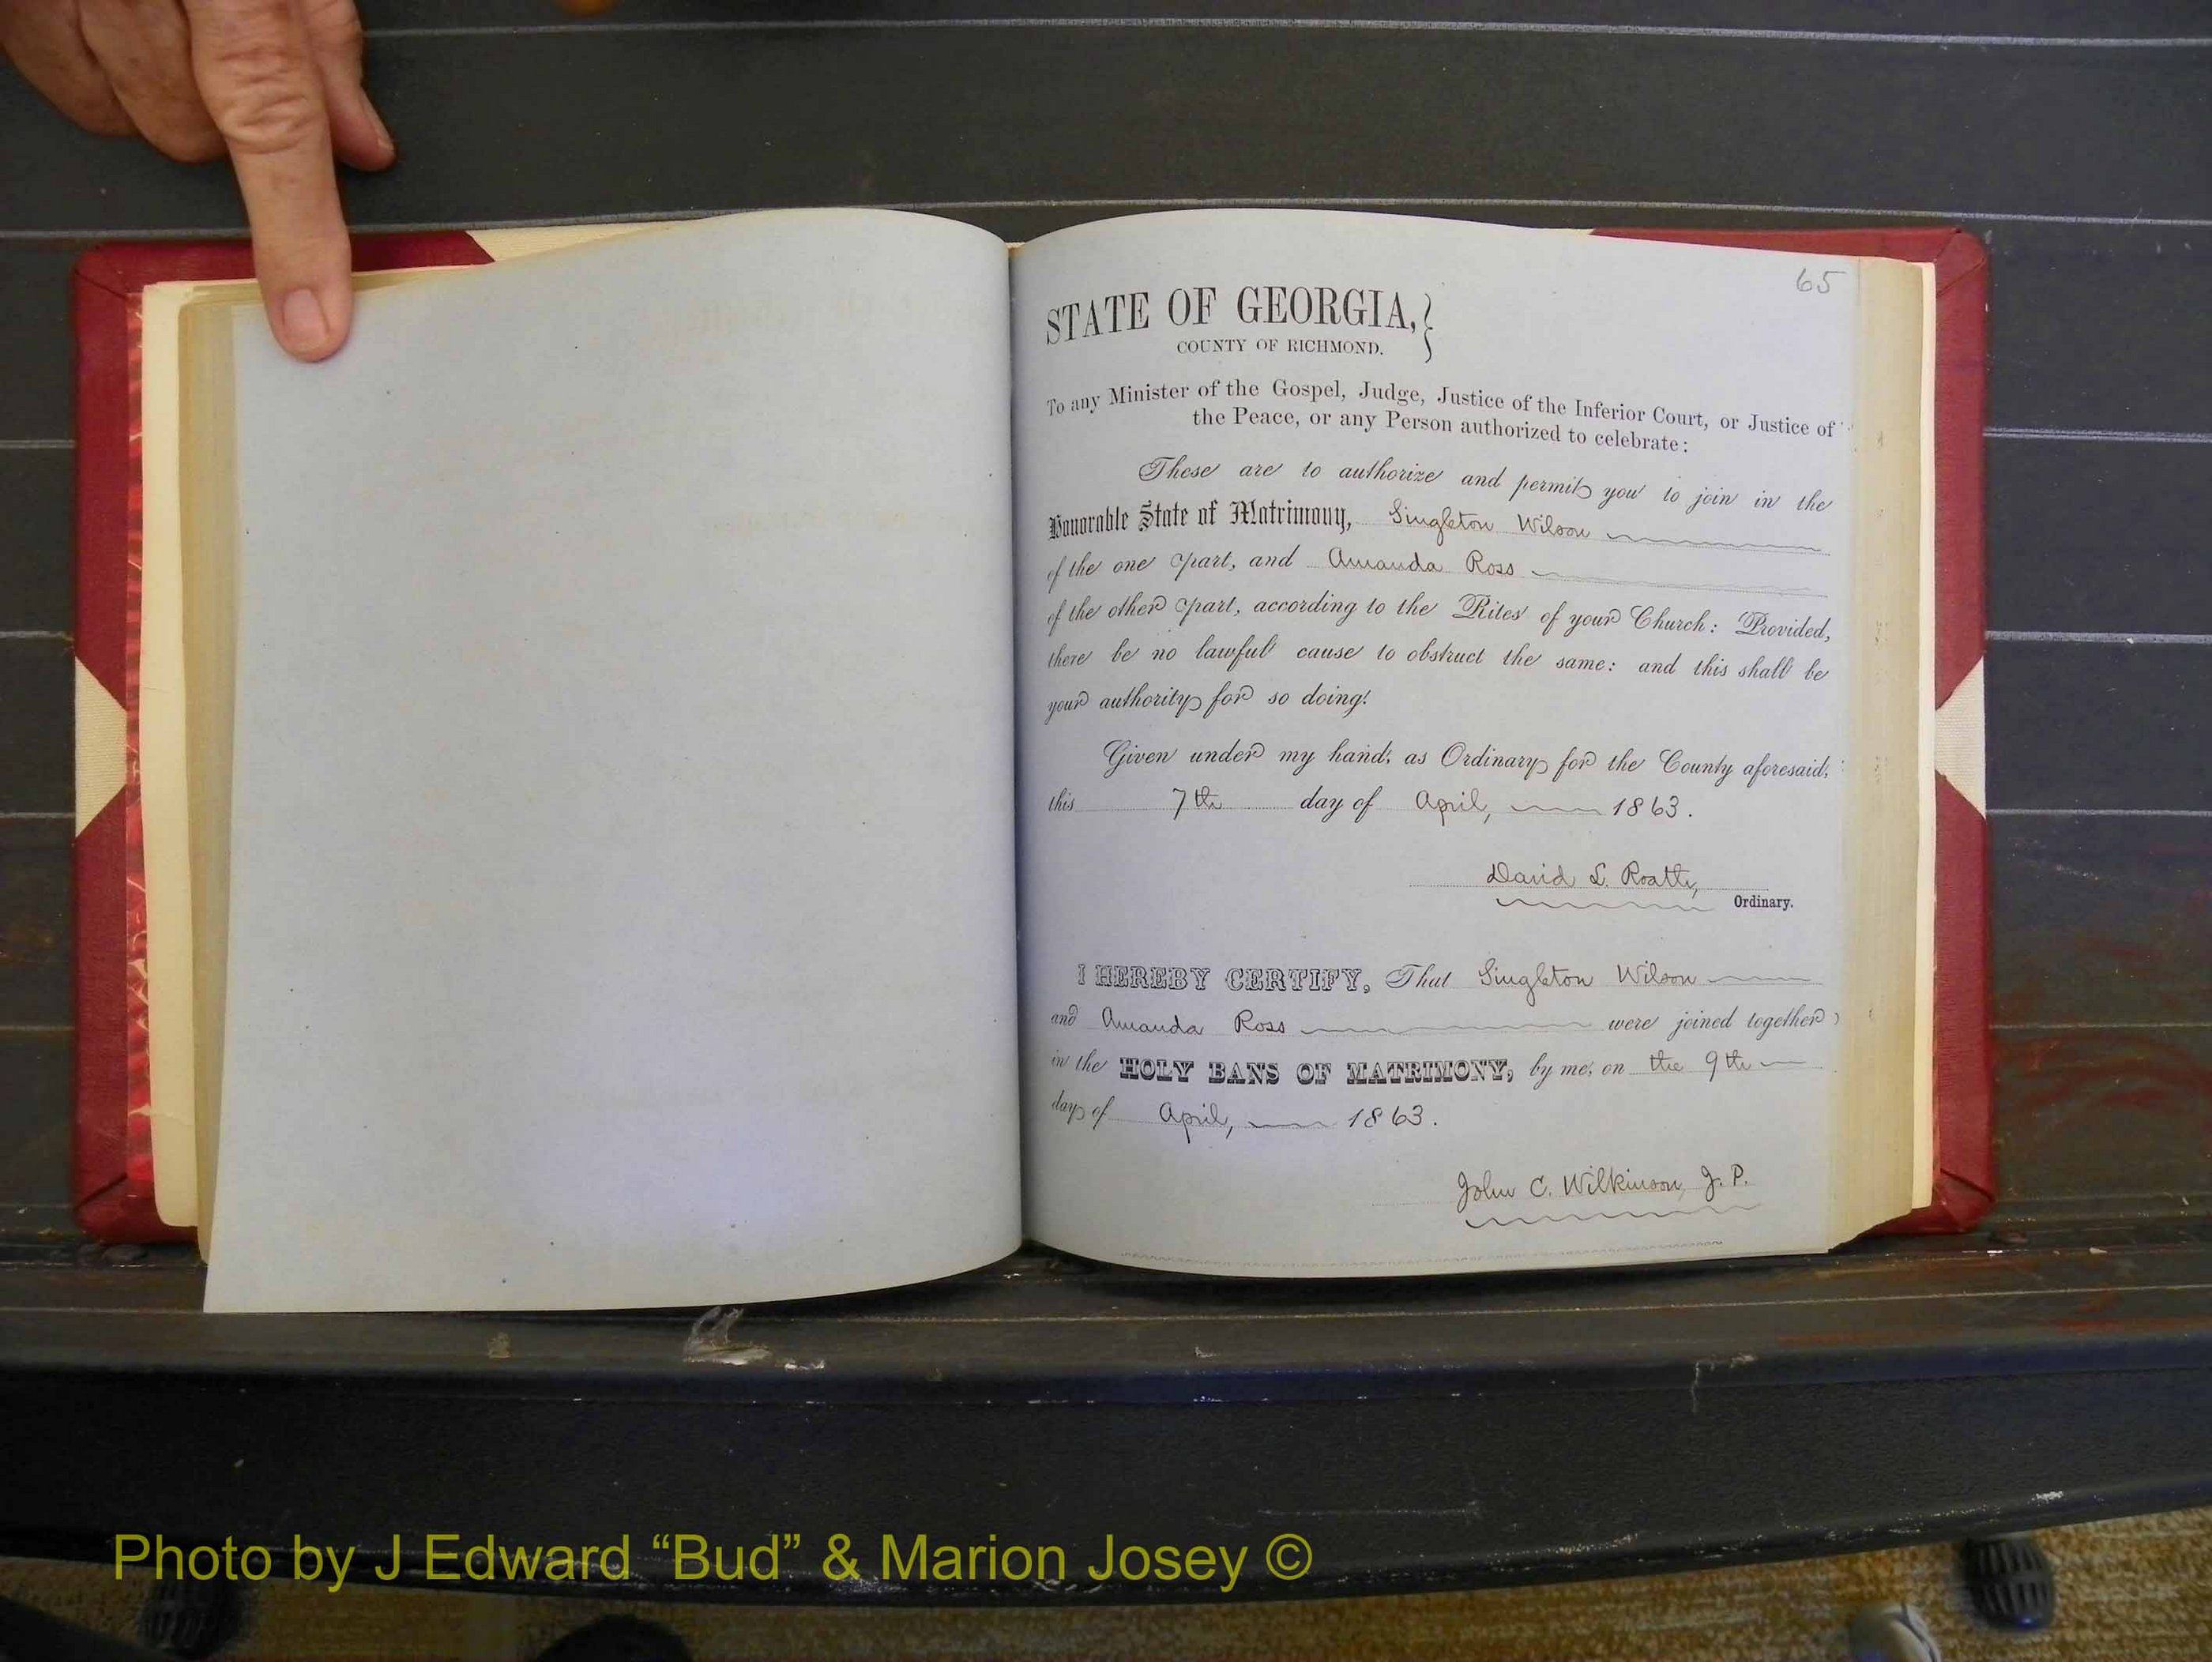 65
STATE OF GEORGIA,}
COUNTY OF RICHMOND.
To any Minister of the Gospel, Judge, Justice of the Inferior Court, or Justice of
the Peace, or any Person authorized to celebrate:
These are to authorize and permit you to join in the
Honorable State of Matrimony, Singleton Wilson
of the one part, and Amanda Ross
of the other part, according to the Rites of your Church: Provided,
there be no lawful cause to obstruct the same: and this shall be
your authority for so doing.
Given under my hand, as Ordinary for the County aforesaid,
this 7th day of April, 1863.
David L. Roath,
Ordinary.
I HEREBY CERTIFY, That Singleton Wilson
and Amanda Ross were joined together
in the HOLY BANS OF MATRIMONY, by me, on the 9th
day of April, 1863.
John C. Wilkinson, J. P.
Photo by J Edward “Bud” & Marion Josey ©